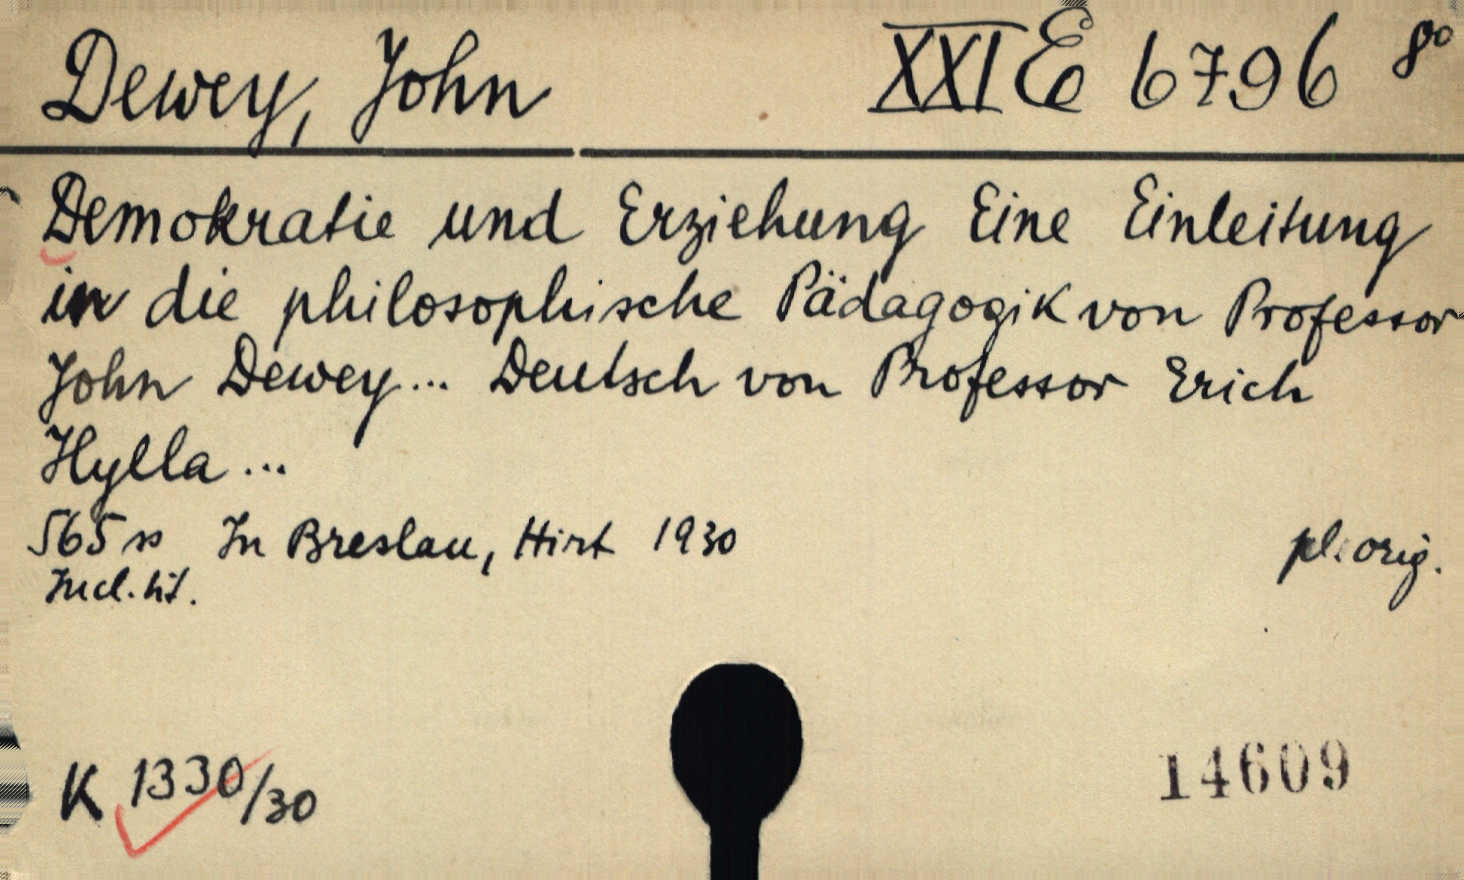 Dewey, John XXI E 6796 8º
Demokratie und Erziehung Eine Einleitung
in die philosophische Pädagogik von Professor
John Dewey... Deutsch von Professor Erich
Hylla...
565 ss In Breslau, Hirt 1930 pl. orig.
Incl. lit.
K 1330/30 14609